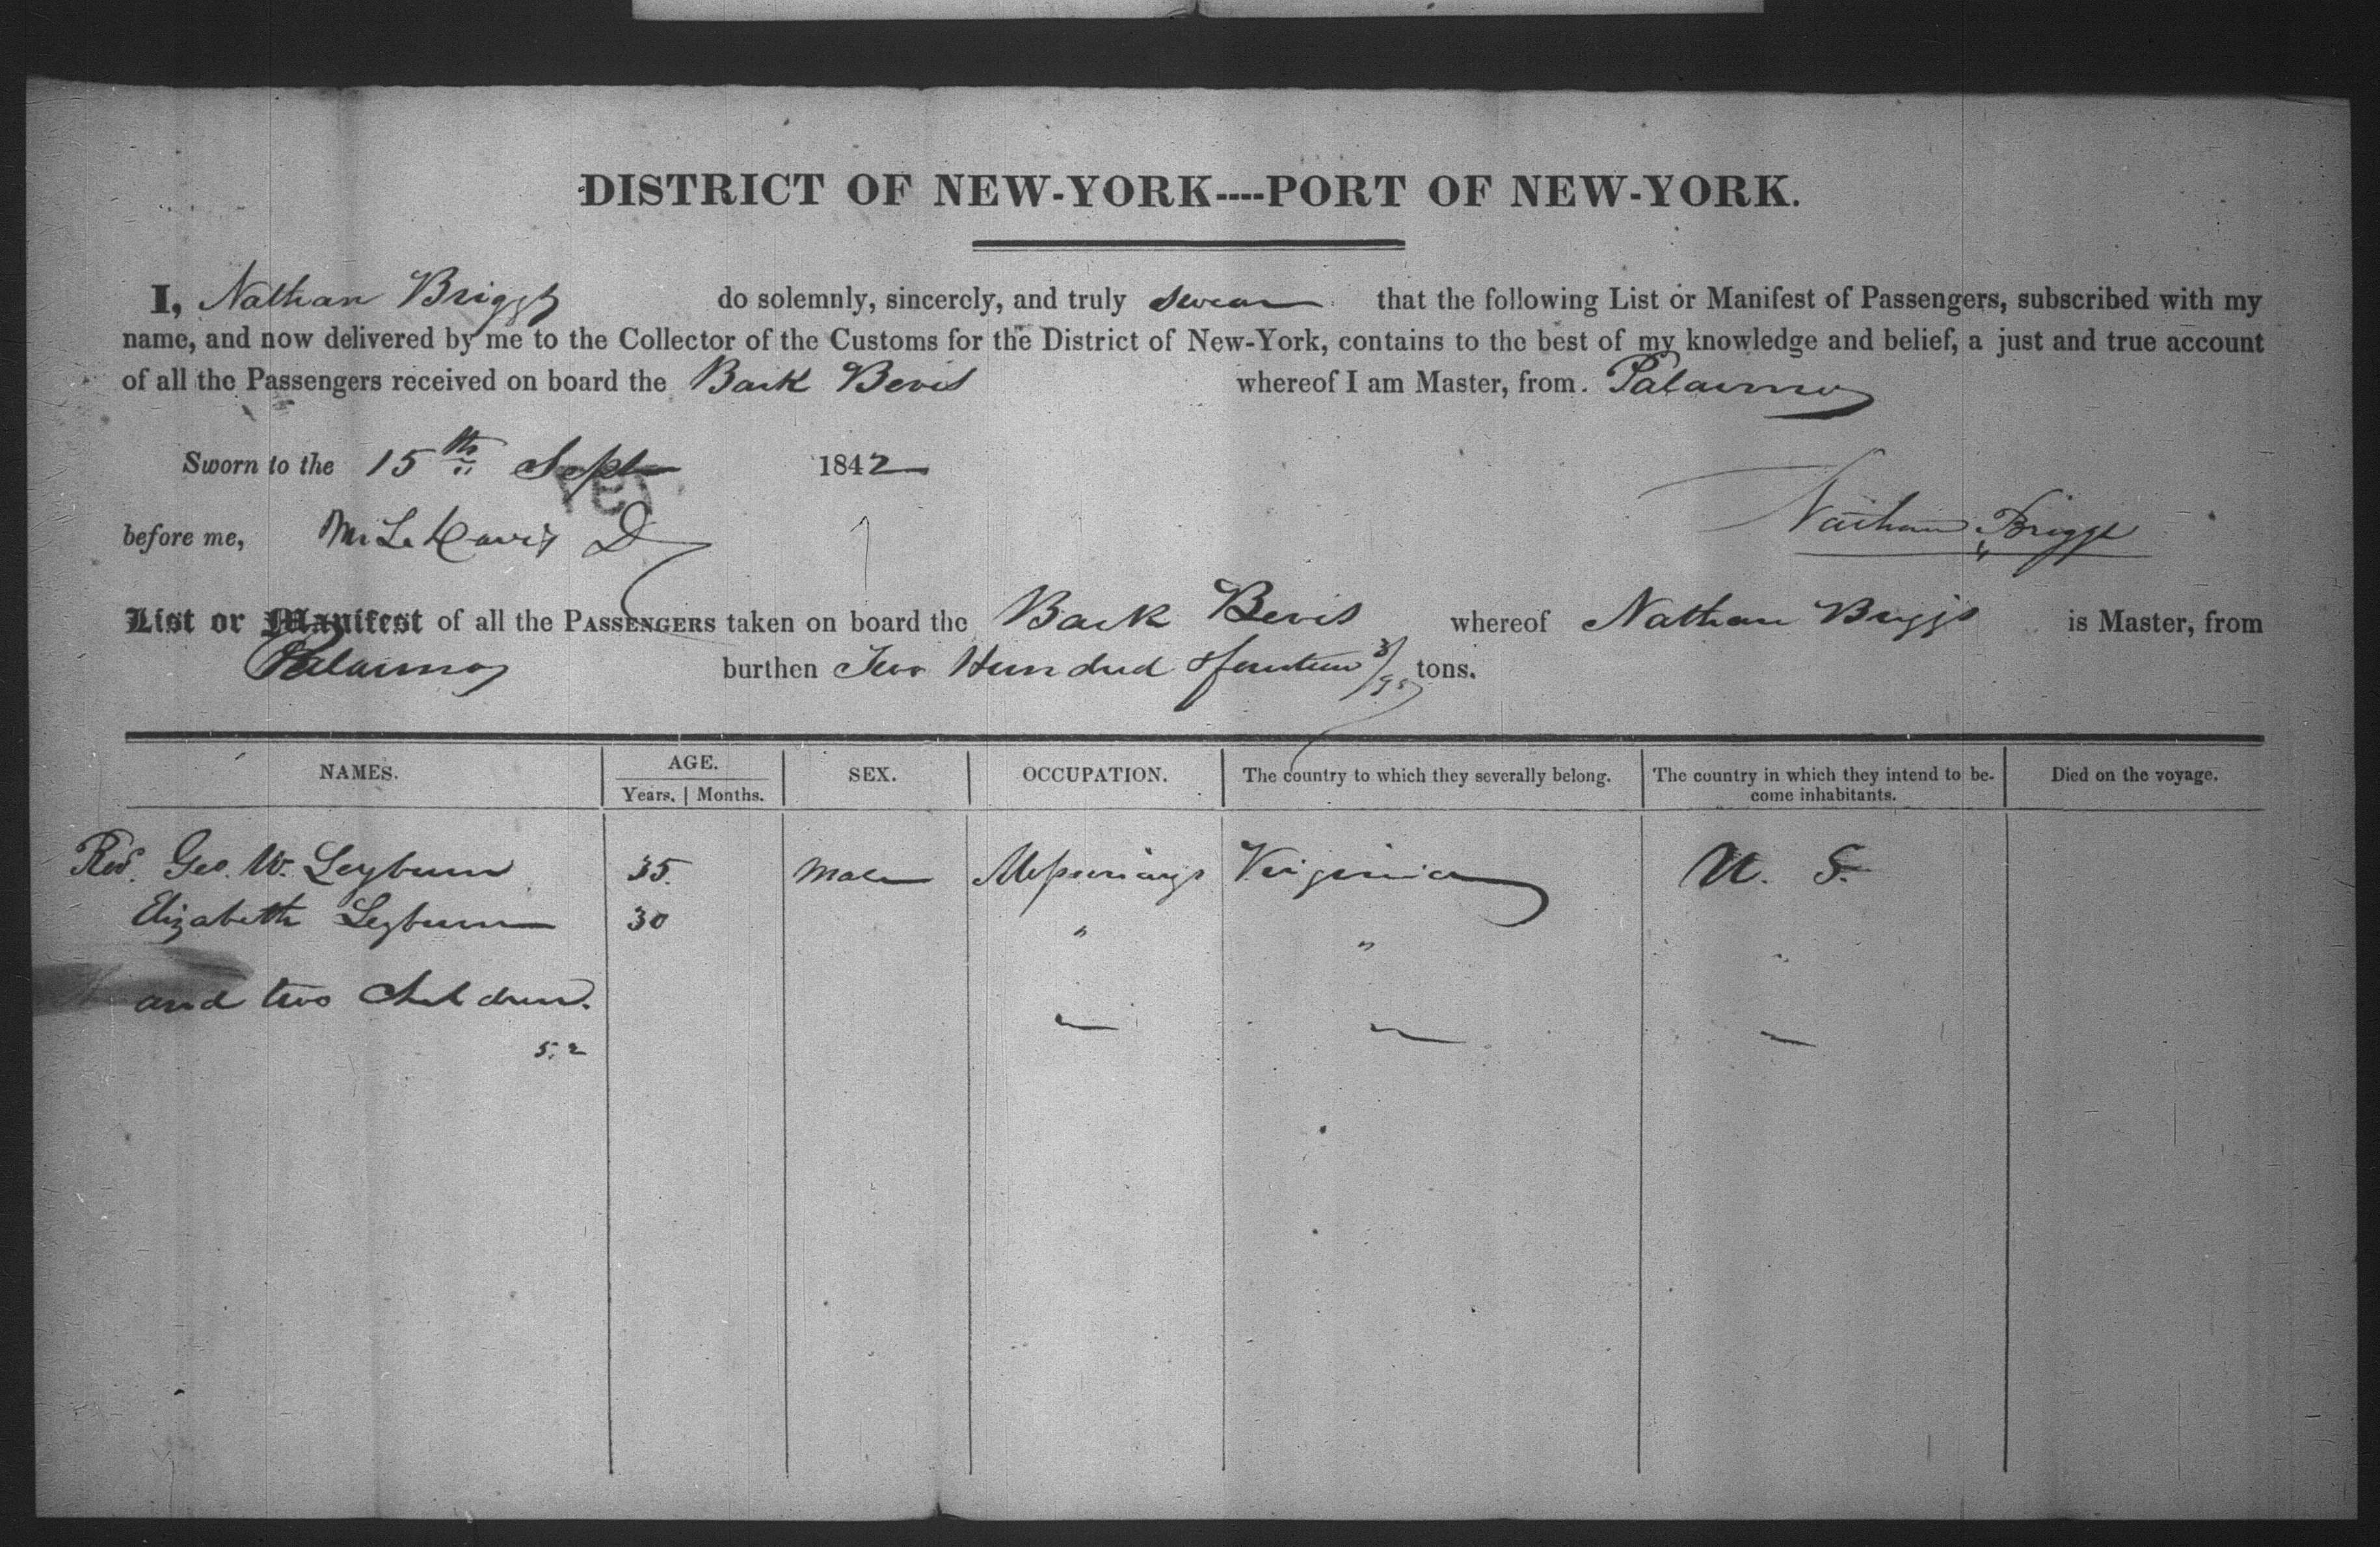 DISTRICT OF NEW-YORK----PORT OF NEW-YORK.
I, Nathan Briggs do solemnly, sincerely, and truly swear that the following List or Manifest of Passengers, subscribed with my
name, and now delivered by me to the Collector of the Customs for the District of New-York, contains to the best of my knowledge and belief, a just and true account
of all the Passengers received on board the Bark Bevis whereof I am Master, from Palarmo
Sworn to the 15th Sept 1842
before me, M. L. Davis D Nathan Briggs
List or Manifest of all the PASSENGERS taken on board the Bark Bevis whereof Nathan Briggs is Master, from
Palarmo burthen Two Hundred & fourteen 3/95 tons.
NAMES. AGE. SEX. OCCUPATION. The country to which they severally belong. The country in which they intend to be- Died on the voyage.
Years. Months. come inhabitants.
Revd. Geo. W. Leyburn 35. Male Virginia U. S.
Elizabeth Leyburn 30 " " "
and two Children.
5. 2